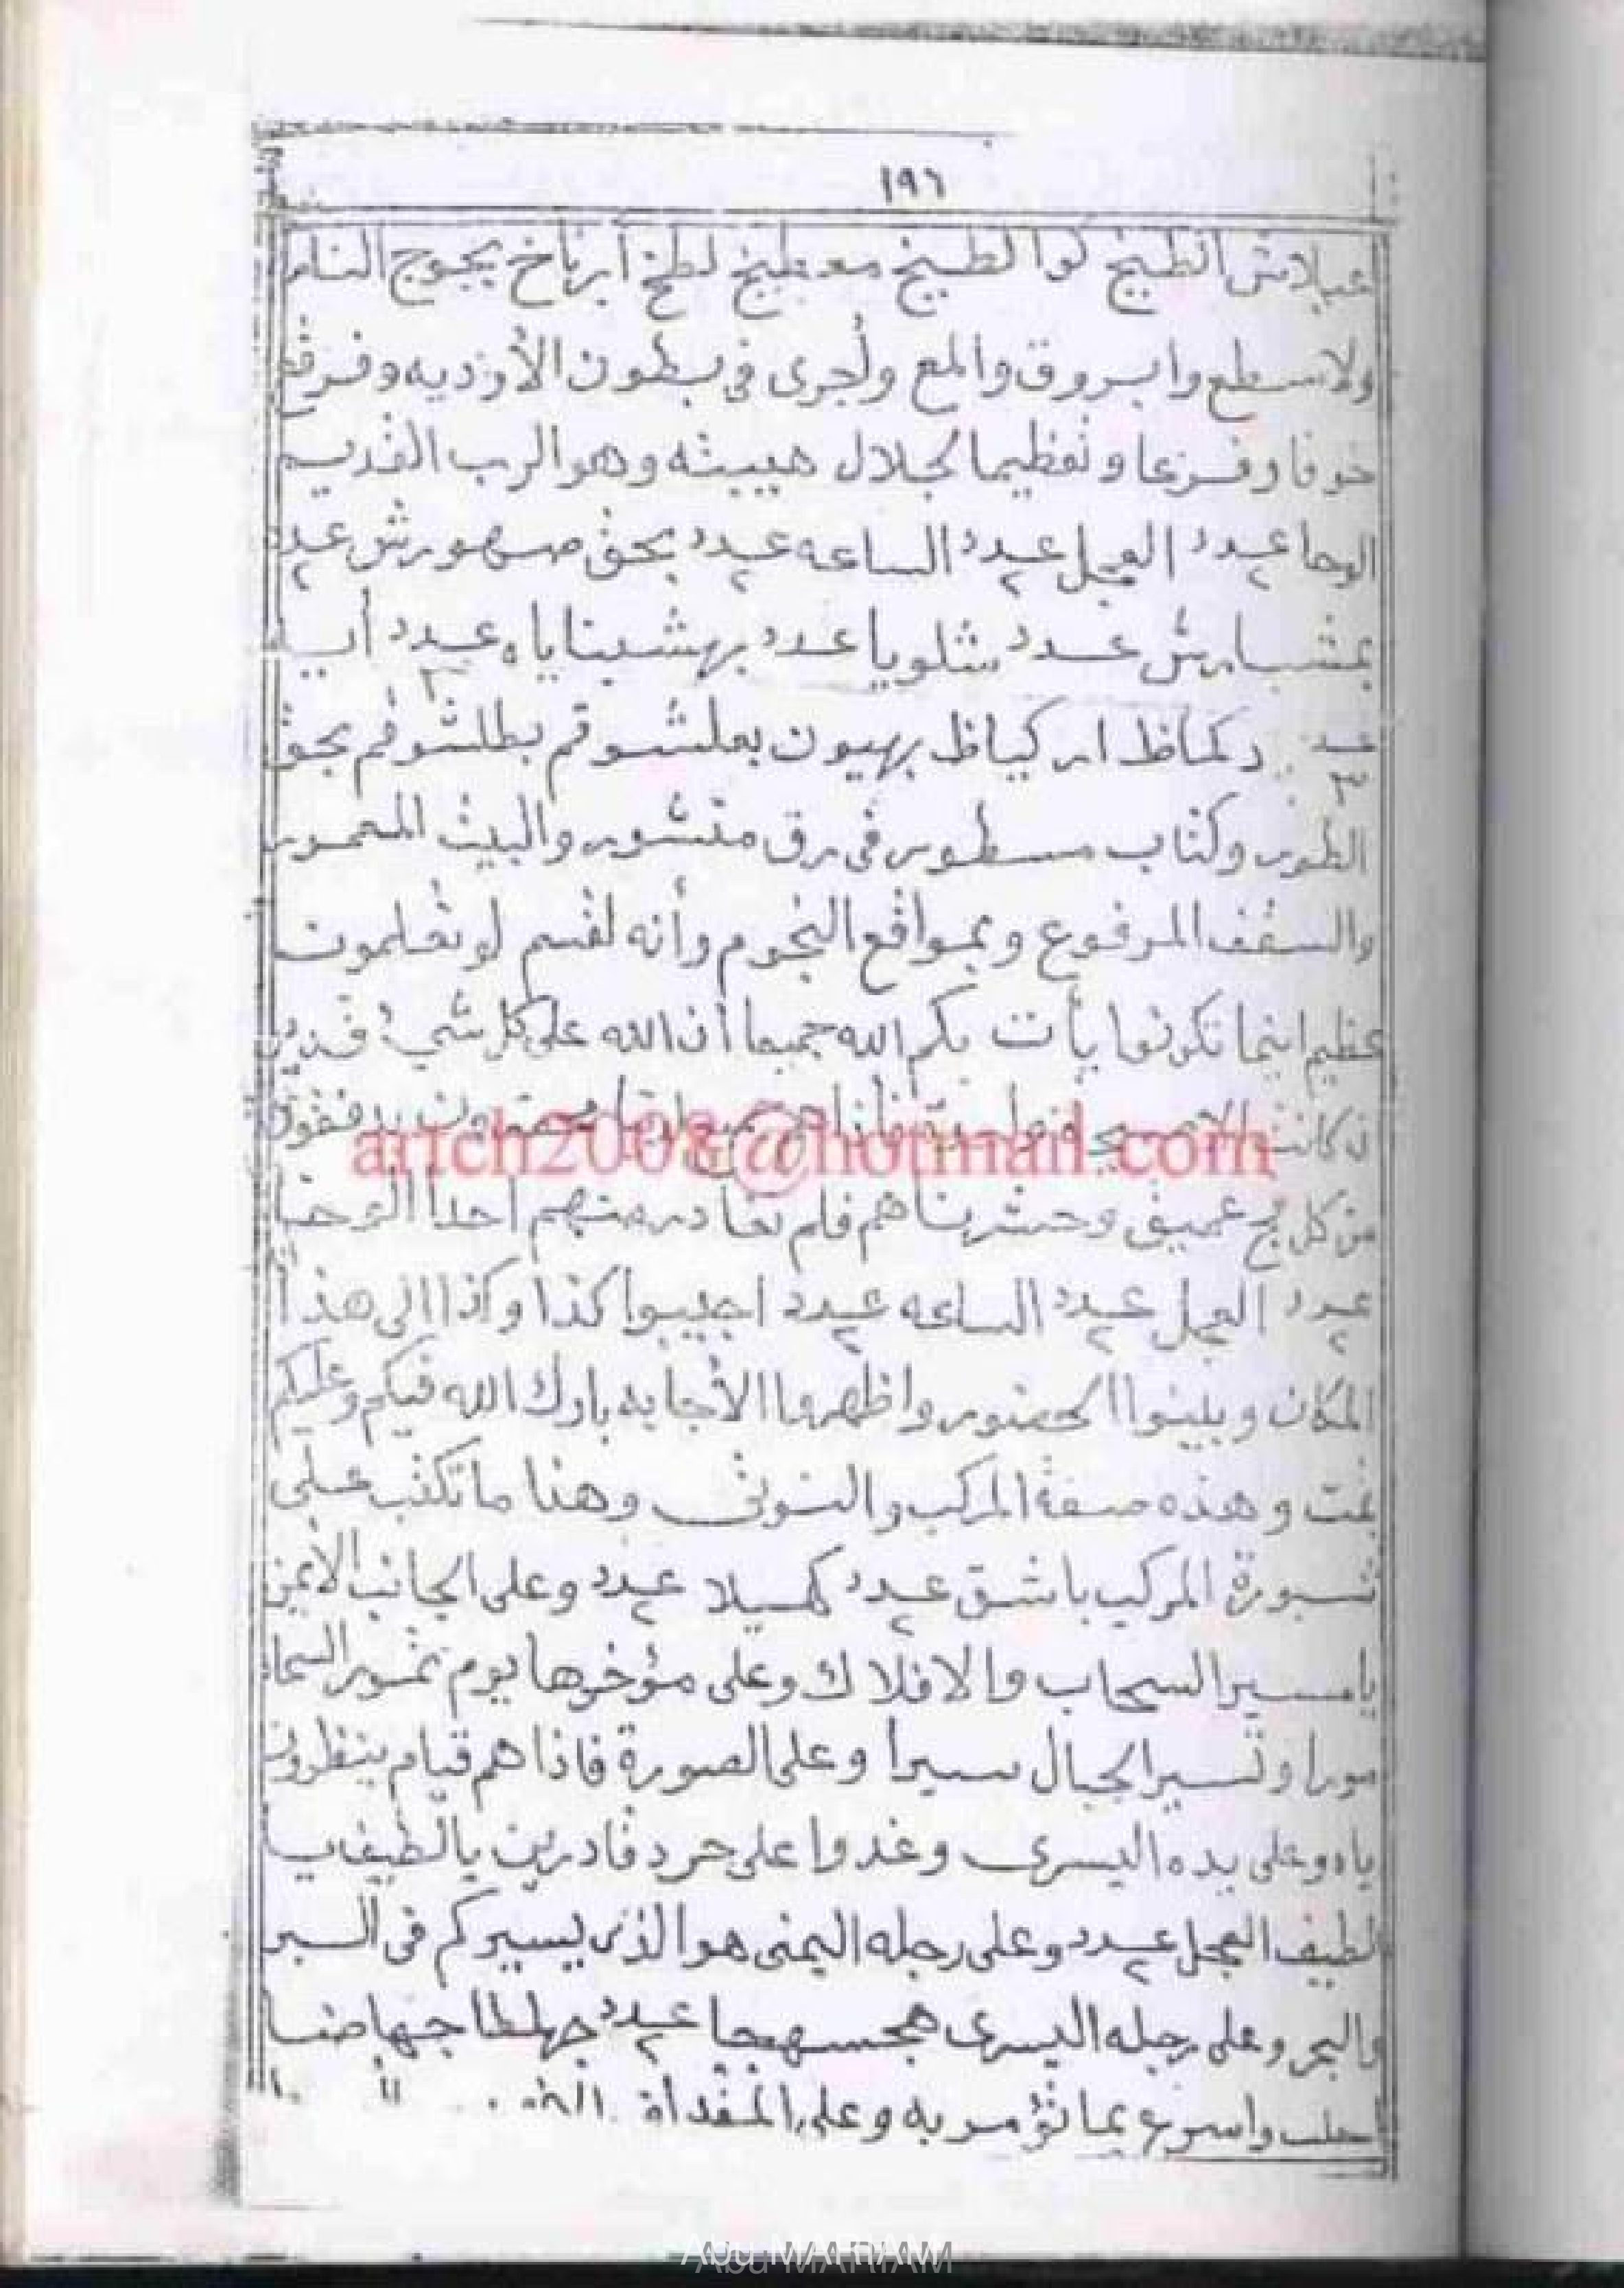 ١٩٦
انطيخ كوا لطيخ معطيخ لطخ أبرياخ يجوج النار
ولا سطع وابروق والمع وأجرى فى بطون الأرديه وفرقه
خوفا وفزعا وتعظيما لجلال هيبته وهو الرب القديم
الوحا عدد ٢ العجل عدد ٢ الساعه عدد ٢ بحق صهورش عدد ٢
بمشبابرش عدد شلويا عدد بهشيناياه عدد ٢ أب
عد ٣ دكماظ اركياظ بهيون بعلشوقم بطلشوقم بحق
الطور وكتاب مسطور فى رق منشور والبيت المعمور
والسقف المرفوع وبمواقع النجوم وأنه لقسم لو تعلمون
عظيم اينما تكونوا يأت بكم الله جميعا أن الله على كل شىء قدير
ن كانت الا صيحة واحدة فأذا هم
من كل فج عميق وحشرناهم فلم نغادر منهم احدا الوحا
عدد ٢ العجل عدد ٢ الساعه عدد ٢ اجيبوا كذا وكذا الى هذا
المكان وبينوا الحضور واظهروا الأجابه بارك الله فيكم وعليكم
تمت وهذه صفة المركب والنوتى وهنا ما تكتب على
شبورة المركب باشق عدد ٢ كهيلا عدد ٢ وعلى الجانب الأيمن
يامسير السحاب والافلاك وعلى مؤخرها يوم تمور السما
مورا وتسير الجبال سيرا وعلى الصورة فاذا هم قيام ينظرون
ياه وعلى يده اليسرى وغدوا على حرد قادرين يالطيف يا
لطيف العجل عدد ٢ وعلى رجله اليمنى هو الذى يسيركم فى البر
والبحر وعلى رجله اليسرى هجسهجا عدد ٢ جهلطا جهاضا
احلب واسرع بما تؤمر به وعلى المقدأة
artch2008@hotmail.com
Abu MARIAM